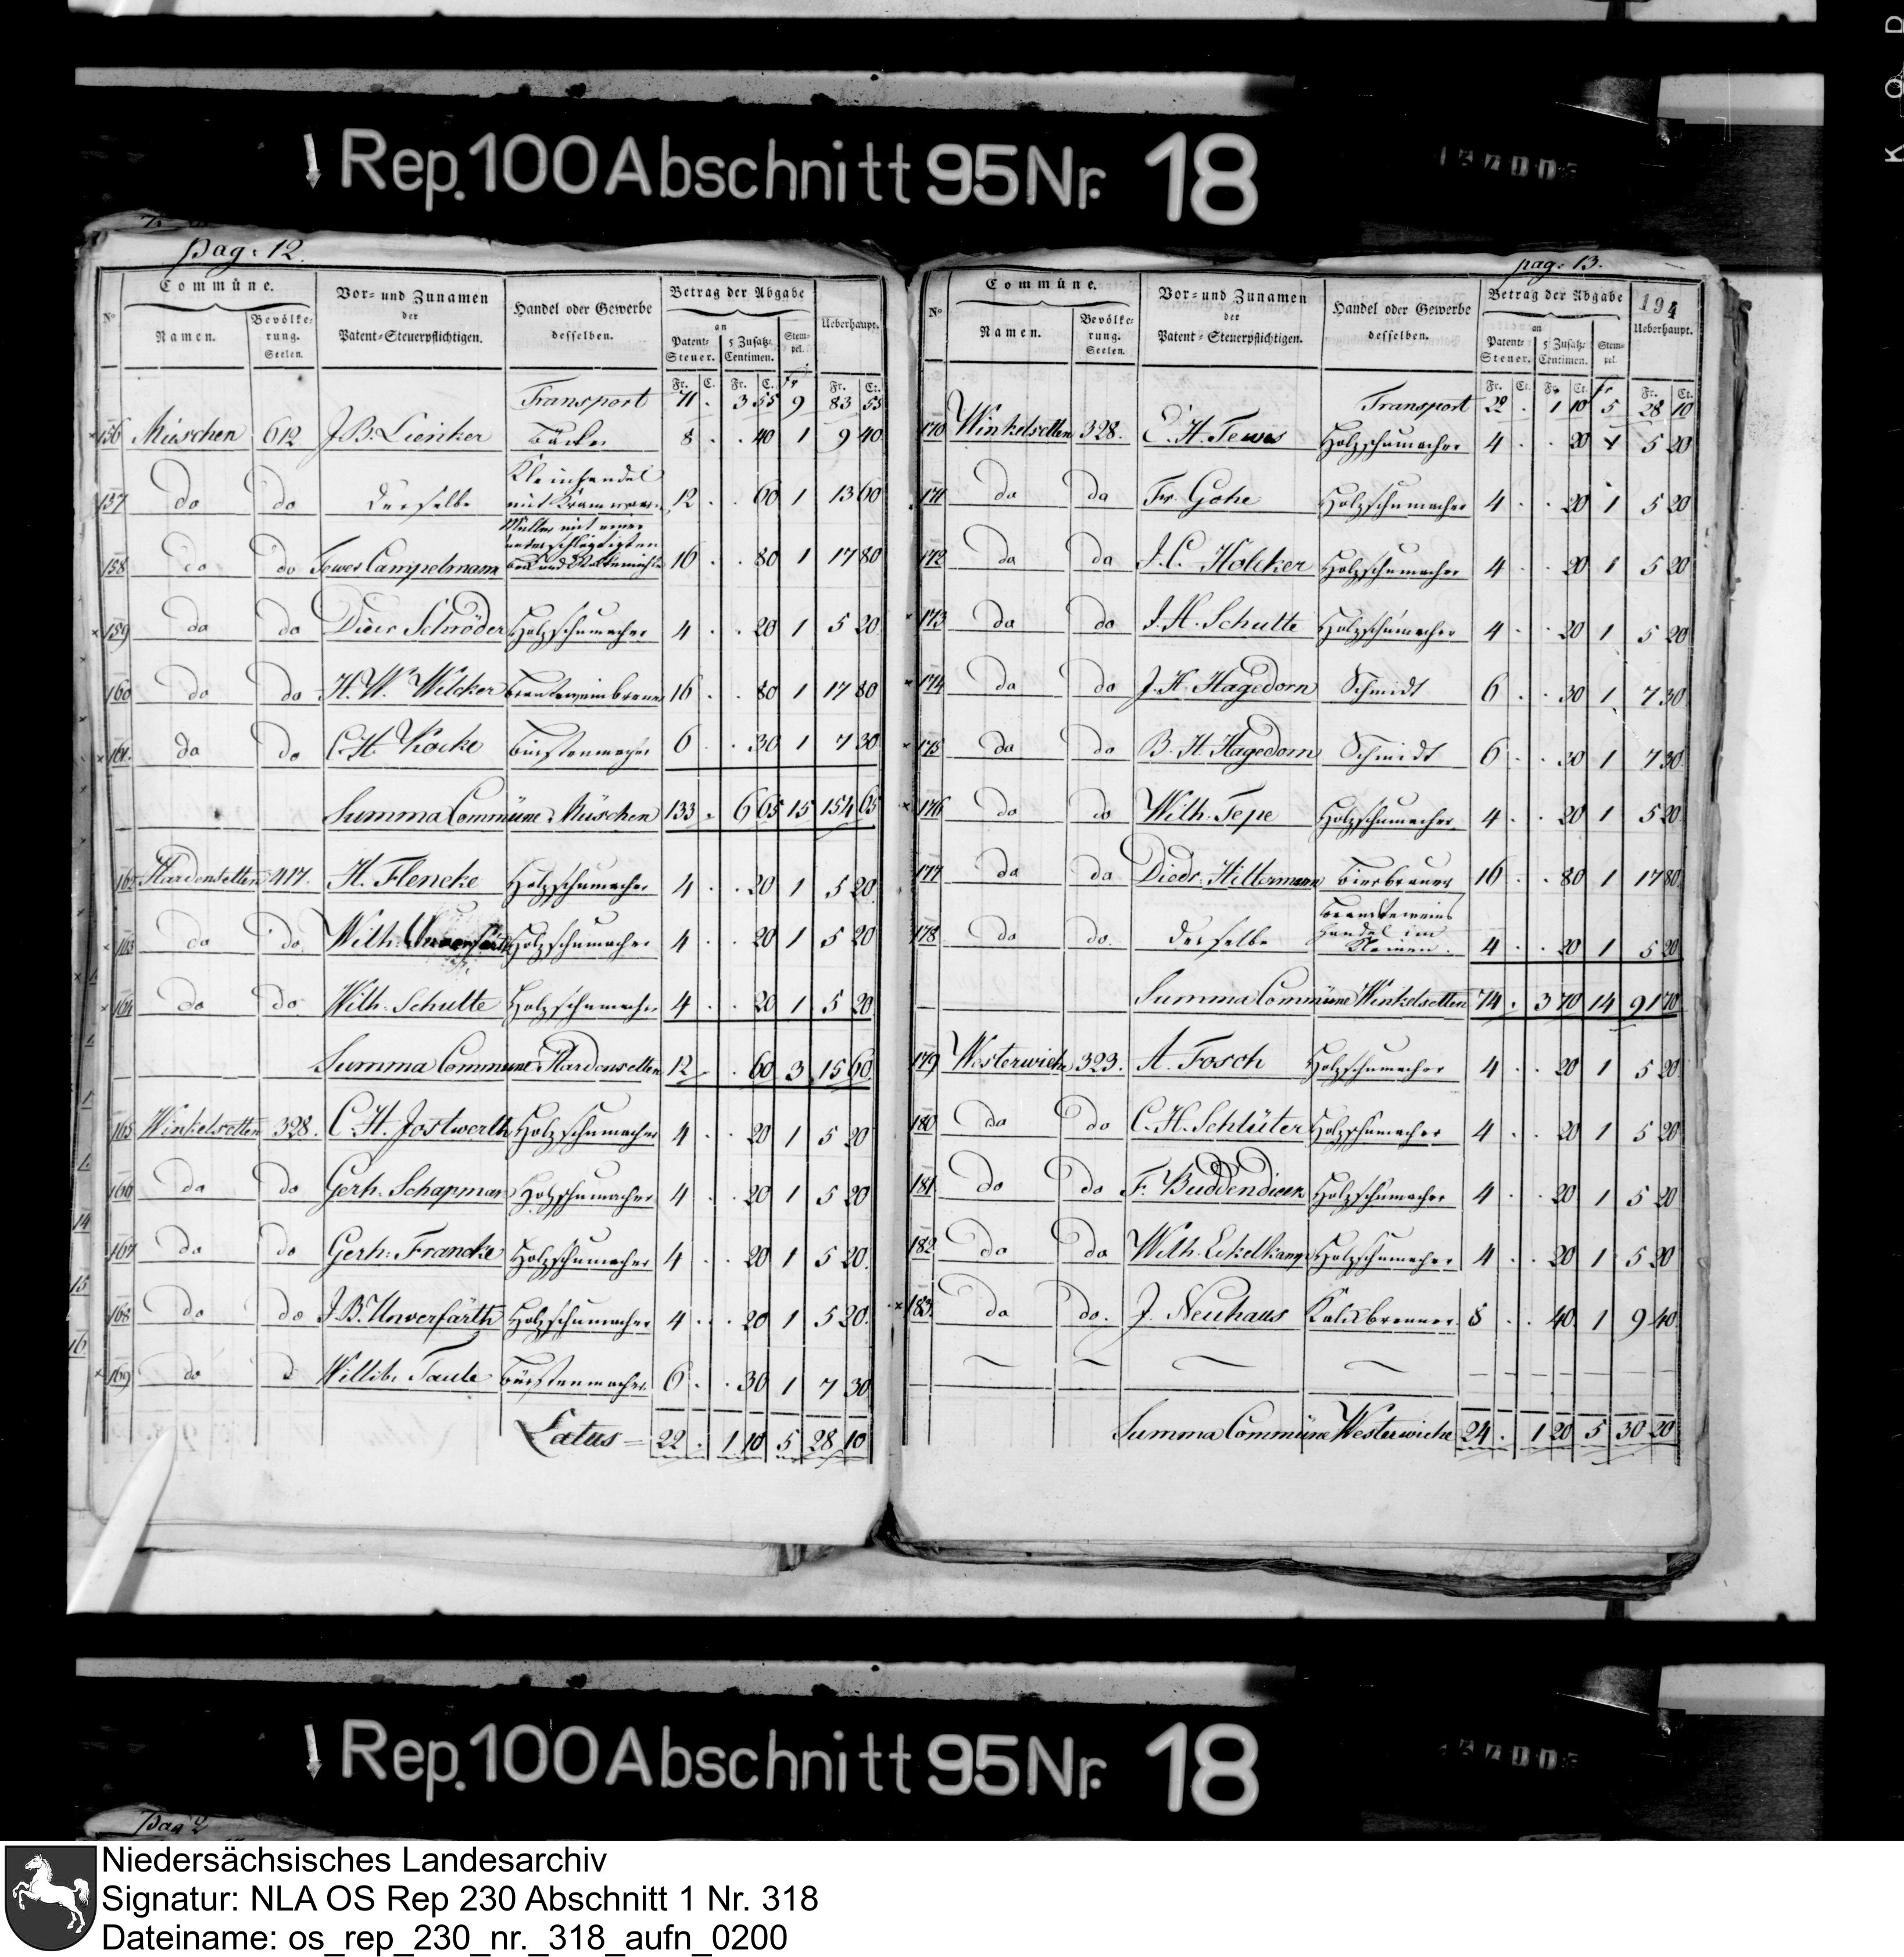 Rep. 100 Abschnitt 95 Nr. 18
pag: 12.
Commüne.
Vor- und Zunamen
der
Patent-Steuerpflichtigen.
Handel oder Gewerbe
desselben.
Betrag der Abgabe
Ueberhaupt.
No
Namen.
Bevölke-
rung.
Seelen.
an
Patent-
Steuer.
5 Zusatz-
Centimen.
Stem-
pel.
Fr. C. Fr. C. fr Fr. Ct.
Transport 71 . 3 55 9 83 55
156 Müschen 612 J. B. Lienker Bäcker 8 . . 40 1 9 40
137 do do Derselbe Kleinhandel mit Kramwaaren 12 . . 60 1 13 60
158 do do Tewes Campelmann Müller mit einer unterschlägtigten 16 . . 80 1 17 80
159 do do Schröder Holzschumacher 4 . . 20 1 5 20
160 do do H. W. Wilcker Branteweinbrenner 16 . . 80 1 17 80
161. do do C. H. Kocke Bürstenmacher 6 . . 30 1 7 30
Summa Commüne Müschen 133 . 6 65 15 154 65
162 Hardensetten 417. H. Flencke Holzschumacher 4 . . 20 1 5 20
163 do do. Wilh. Holzschumacher 4 . . 20 1 5 20
164 do do. Wilh. Schulte Holzschumacher 4 . . 20 1 5 20
Summa Commune Hardensetten 12 . . 60 3 15 60
165 Winkelsetten 328. C. H. Jostwerth Holzschumacher 4 . . 20 1 5 20
166 do do Gerh. Schapman Holzschumacher 4 . . 20 1 5 20
167 do do Gerh: Francke Holzschumacher 4 . . 20 1 5 20.
168 do do J. B. Unverfärth Holzschumacher 4 . . 20 1 5 20.
169 do d Willib. Taule Bürstenmacher 6 . . 30 1 7 30
Latus = 22 . 1 10 5 28 10
pag: 13.
194
Commüne.
Vor- und Zunamen
der
Patent-Steuerpflichtigen.
Handel oder Gewerbe
desselben.
Betrag der Abgabe
Ueberhaupt.
No
Namen.
Bevölke-
rung.
Seelen.
an
Patent-
Steuer.
5 Zusatz-
Centimen.
Stem-
pel.
Fr. Ct. Fr. Ct. fr Fr. Ct.
Transport 22 . 1 10 5 28 10
170 Winkelsetten 328. C. H. Tewes Holzschumacher 4 . . 20 1 5 20
171 do do Fr. Gohe Holzschumacher 4 . . 20 1 5 20
172 do do J. C. Holcker Holzschumacher 4 . . 20 1 5 20
173 do do J. H. Schulte Holzschumacher 4 . . 20 1 5 20
174 do do J. H. Hagedorn Schmidt 6 . . 30 1 7 30
175 do do B. H. Hagedorn Schmidt 6 . . 30 1 7 30.
176 do do Wilh. Tepe Holzschumacher 4 . . 20 1 5 20
177 do do Diedr. Hiltermann Bierbrauer 16 . . 80 1 17 80
178 do do. Derselbe Branteweins Handel im Kleinen. 4 . . 20 1 5 20
Summa Commüne Winkelsetten 74 . 3 70 14 91 70
179 Westerwiche 323. A. Fosch Holzschumacher 4 . . 20 1 5 20
180 do do C. H. Schlüter Holzschumacher 4 . . 20 1 5 20
181 do do F. Buddendieck Holzschumacher 4 . . 20 1 5 20
182 do do Wilh. Eckelkamp Holzschumacher 4 . . 20 1 5 20
183. do do. J. Neuhaus Kalckbrenner 8 . . 40 1 9 40
Summa Commüne Westerwiche 24 . 1 20 5 30 20
Rep. 100 Abschnitt 95 Nr. 18
Pag 2
Niedersächsisches Landesarchiv
Signatur: NLA OS Rep 230 Abschnitt 1 Nr. 318
Dateiname: os_rep_230_nr._318_aufn_0200